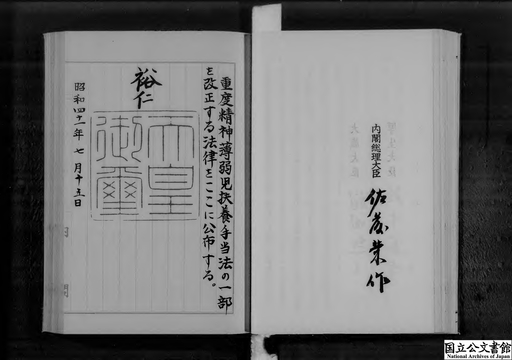 重度精神薄弱児扶養手当法の一部
を改正する法律をここに公布する。
裕仁
天皇
御璽
昭和四十一年七月十五日
内閣総理大臣
佐藤栄作
国立公文書館
National Archives of Japan